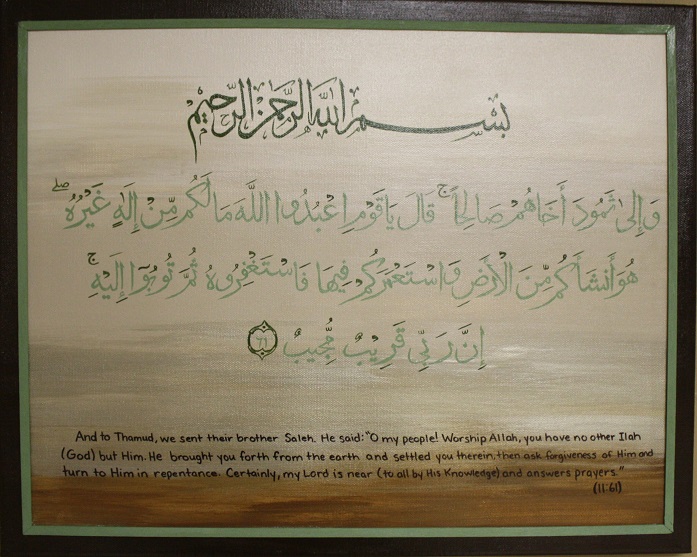 بِسْمِ اللَّهِ الرَّحْمَنِ الرَّحِيمِ
وَإِلَىٰ ثَمُودَ أَخَاهُمْ صَالِحًا ۚ قَالَ يَا قَوْمِ اعْبُدُوا اللَّهَ مَا لَكُم مِّنْ إِلَٰهٍ غَيْرُهُ ۖ
هُوَ أَنشَأَكُم مِّنَ الْأَرْضِ وَاسْتَعْمَرَكُمْ فِيهَا فَاسْتَغْفِرُوهُ ثُمَّ تُوبُوا إِلَيْهِ ۚ
إِنَّ رَبِّي قَرِيبٌ مُّجِيبٌ ٦١
And to Thamud, we sent their brother Saleh. He said: "O my people! Worship Allah, you have no other Ilah
(God) but Him. He brought you forth from the earth and settled you therein, then ask forgiveness of Him and
turn to Him in repentance. Certainly, my Lord is near (to all by His Knowledge) and answers prayers."
(11:61)